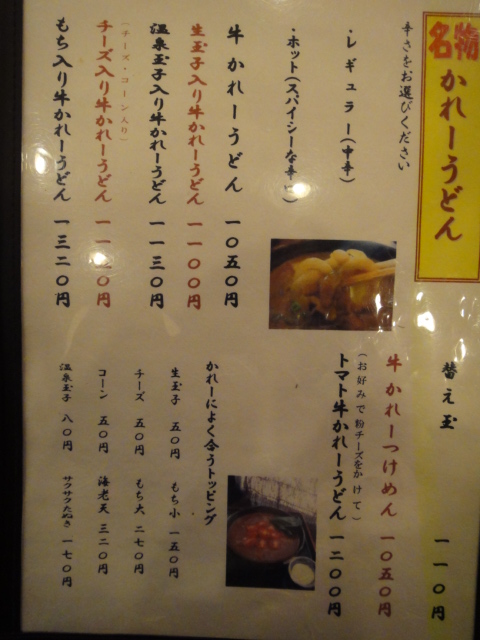 名物
かれーうどん
辛さをお選びください
・レギュラー(中辛)
・ホット(スパイシーな辛口)
牛かれーうどん 一〇五〇円
生玉子入り牛かれーうどん 一一〇〇円
温泉玉子入り牛かれーうどん 一一三〇円
(チーズ・コーン入り)
チーズ入り牛かれーうどん 一一五〇円
もち入り牛かれーうどん 一三二〇円
替え玉 一一〇円
牛かれーつけめん 一〇五〇円
(お好みで粉チーズをかけて)
トマト牛かれーうどん 一二〇〇円
かれーによく合うトッピング
生玉子 五〇円
もち小 一五〇円
チーズ 五〇円
もち大 二七〇円
コーン 五〇円
海老天 三二〇円
温泉玉子 八〇円
サクサクたぬき 一七〇円